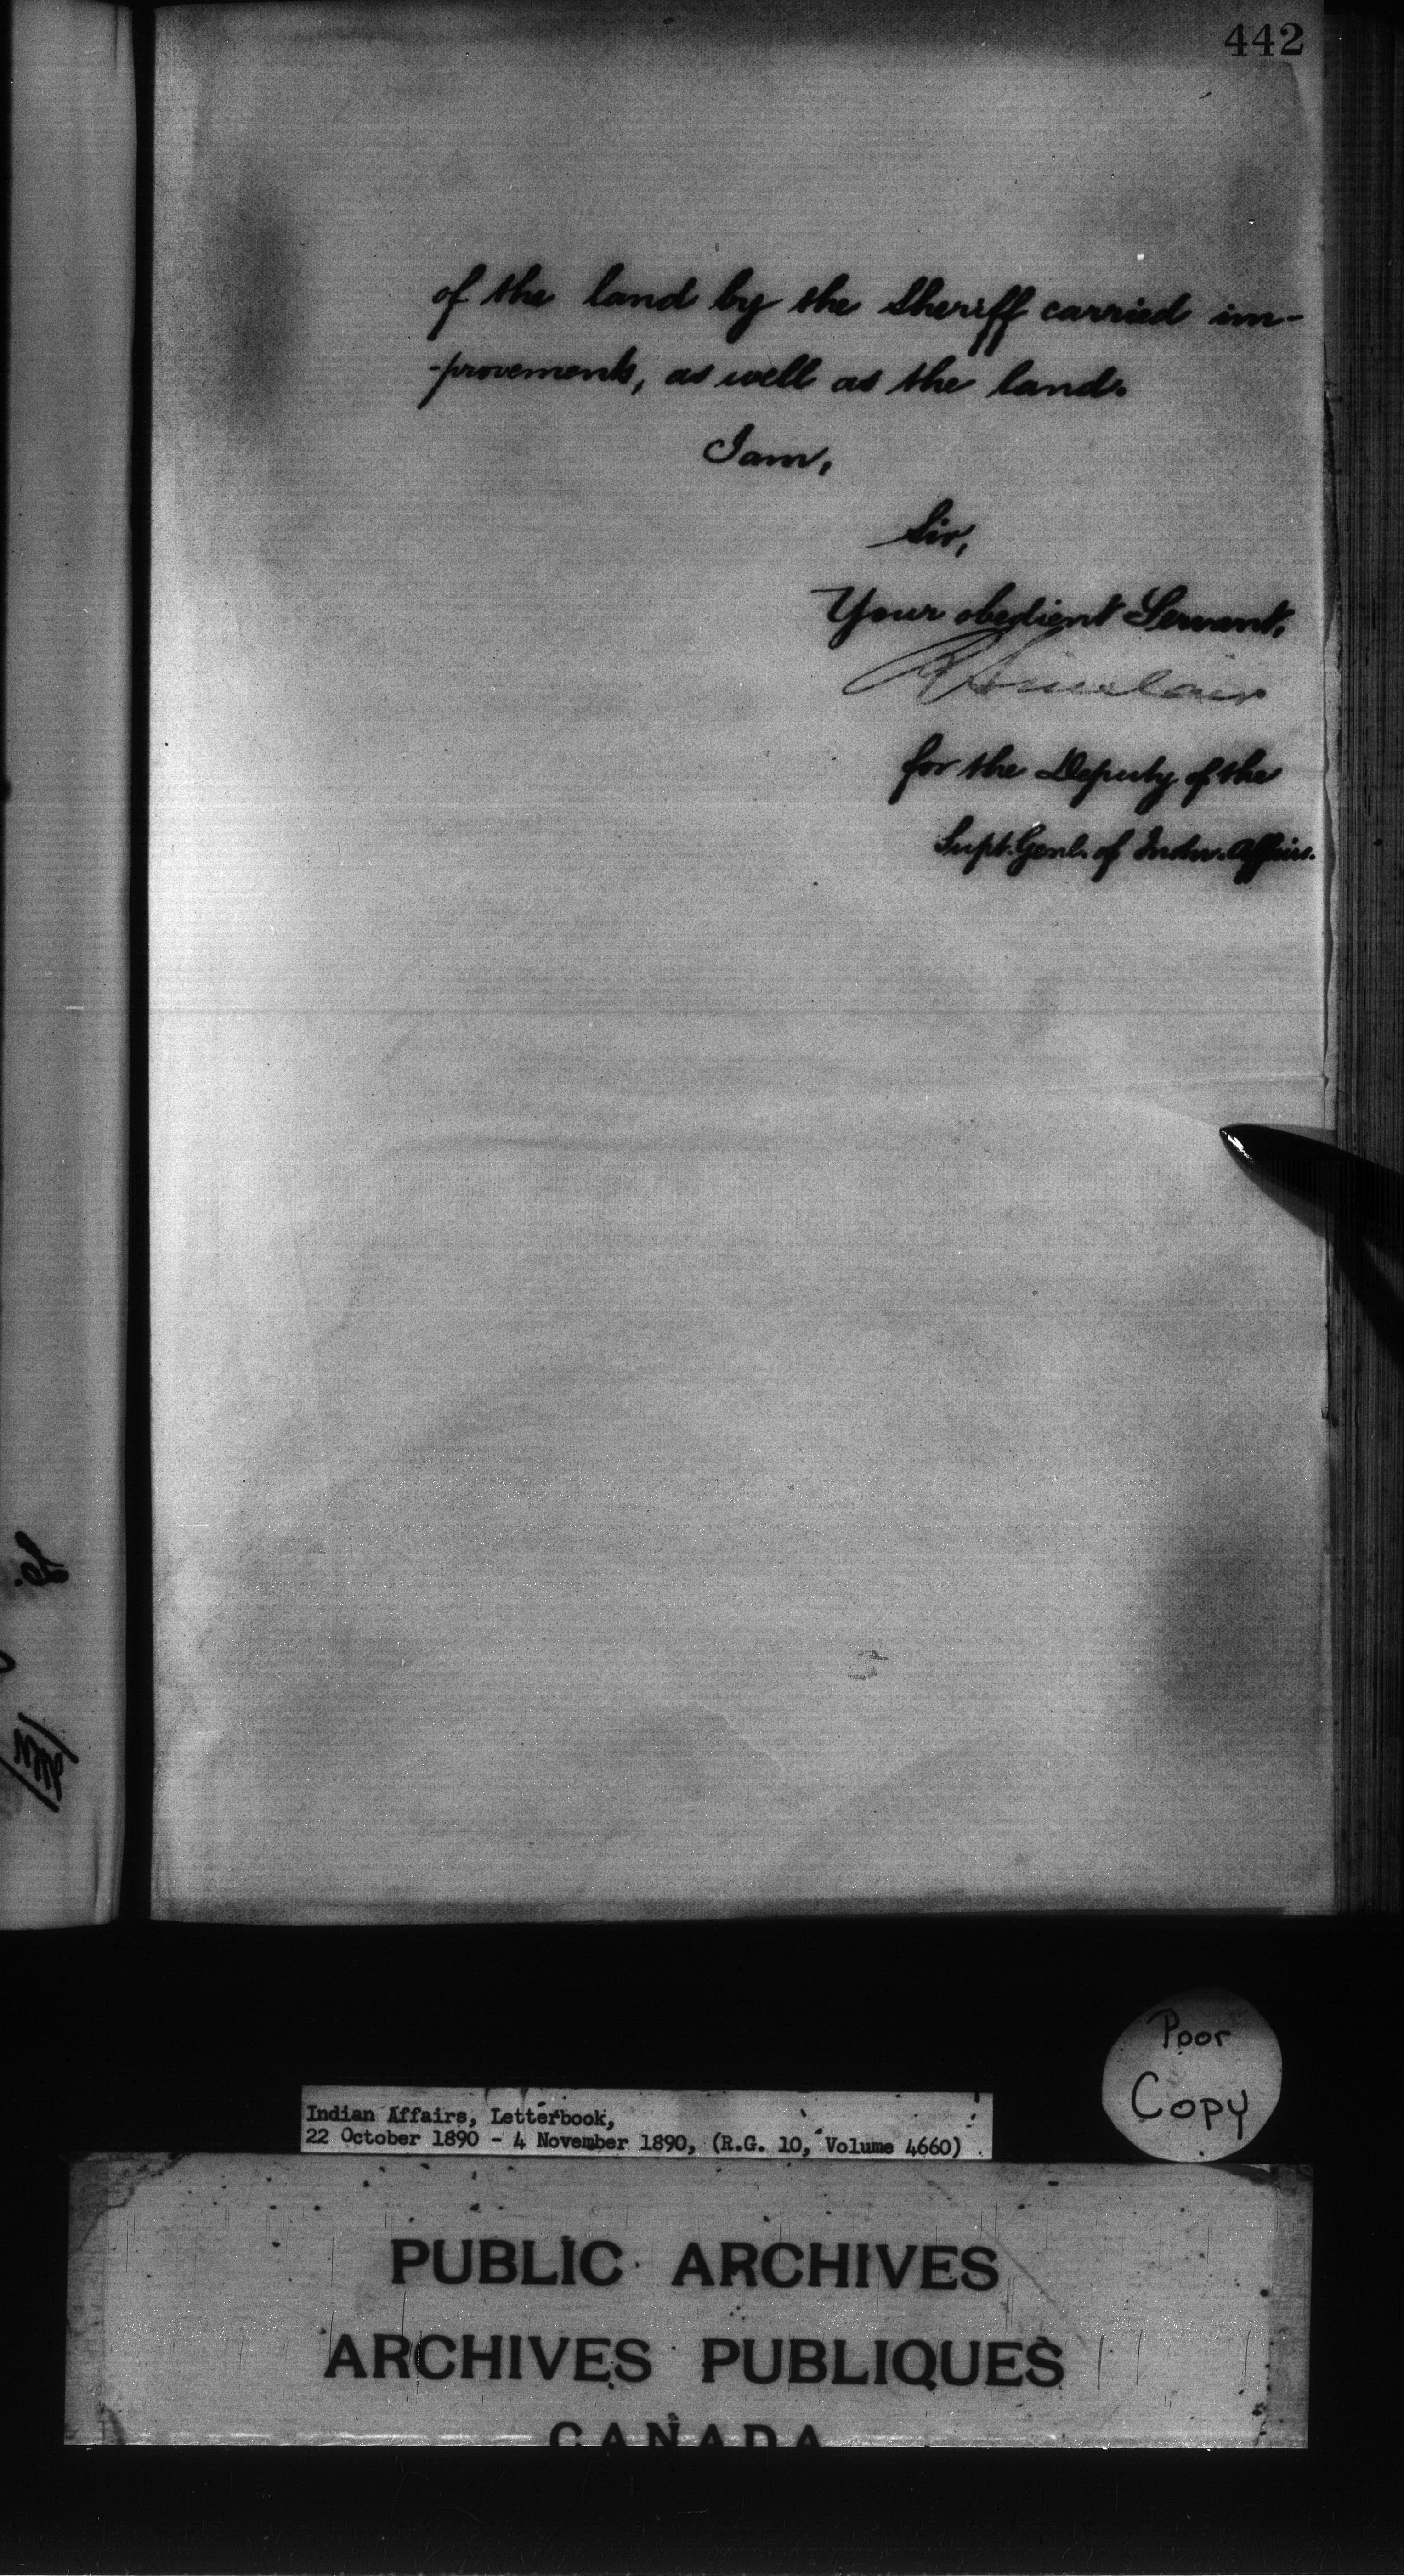 442
of the land by the Sheriff carried im-
-provements, as well as the land.
I am,
Sir,
Your obedient Servant,
R Sinclair
for the Deputy of the
Supt. Genl. of Indn. Affairs.
Poor
Copy
Indian Affairs, Letterbook,
22 October 1890 - 4 November 1890, (R.G. 10, Volume 4660)
PUBLIC ARCHIVES
ARCHIVES PUBLIQUES
CANADA